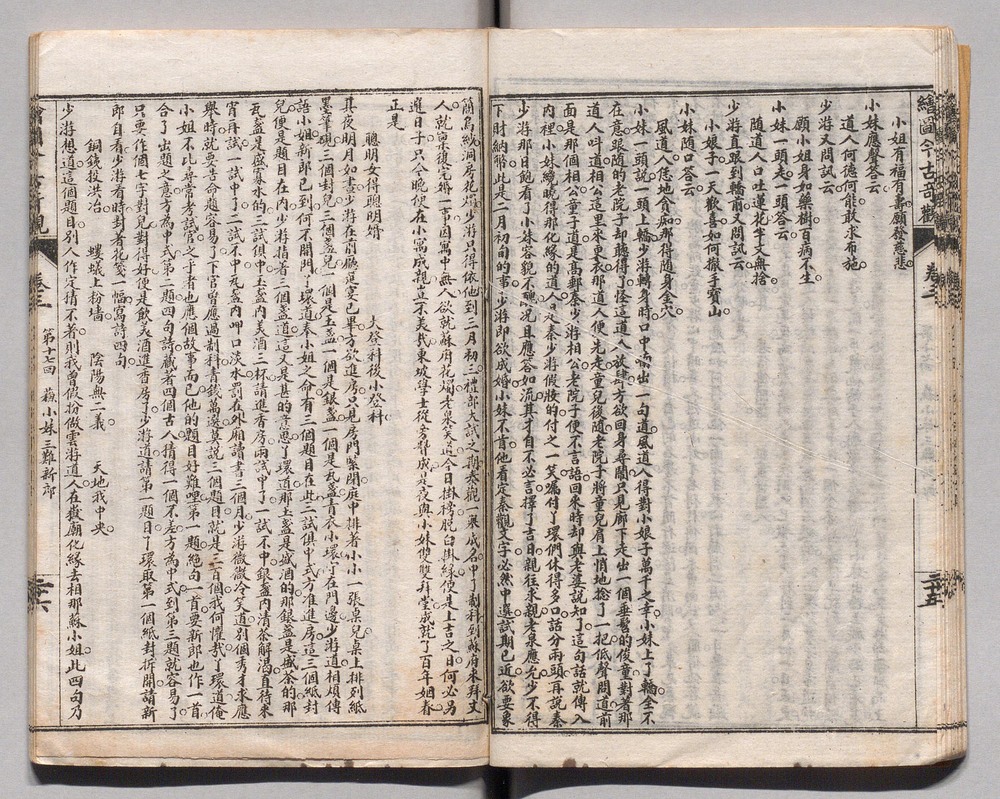 繪圖今古奇觀 卷三 三十五
小姐有福有壽願發慈悲
小妹應聲荅云
道人何德何能敢求布施
少游又問訊云
願小姐身如藥樹百病不生
小妹一頭走一頭荅云
隨道人口吐蓮花半文無捨
少游直跟到轎前又問訊云
小娘子一天歡喜如何撒手寶山
小妹隨口荅云
風道人恁地貪痴那得隨身金穴
小妹一頭說一頭上轎少游轉身時口中喃出一句道風道人得對小娘子萬千之幸小妹上了轎全不
在意跟隨的老院子却聽得了怪這道人放肆方欲回身尋鬧只見廊下走出一個垂髫的俊童對著那
道人呌道相公這里來更衣那道人便先走童兒後隨老院子將童兒肩上悄地捻了一把低聲問道前
面是那個相公童子道是高郵秦少游相公老院子便不言語回來時却與老婆說知了這句話就傳入
內裡小妹纔曉得那化緣的道人是秦少游假妝的付之一笑囑付丫環們休得多口話分兩頭再說秦
少游那日飽看了小妹容貌不醜況且應荅如流其才自不必言擇了吉日親往求親老泉應允少不得
下財納幣此是二月初旬的事少游即欲成婚小妹不肯他看定秦觀文字必然中選試期已近欲要象
簡烏紗洞房花燭少游只得依他到三月初三禮部大試之期秦觀一舉成名中了制科到蘇府來拜丈
人就稟復完婚一事因寓中無人欲就蘇府花燭老泉笑道今日掛榜脫白掛綠便是上吉之日何必另
選日子只今晚便在小寓成親豈不美哉東坡學士從旁贊成是夜與小妹雙雙拜堂成就了百年姻眷
正是
聰明女得聰明婿 大登科後小登科
其夜明月如晝少游在前廳筵宴已畢方欲進房只見房門緊閉庭中排着小小一張桌兒桌上排列紙
墨筆硯三個封兒三個盞兒一個是玉盞一個是銀盞一個是瓦盞青衣小環守在門邊少游道相煩傳
語小姐新郎已到何不開門丫環道奉小姐之命有三個題目在此三試俱中式方准進房這三個紙封
兒便是題目在內少游指着三個盞道這又是甚的意思丫環道那玉盞是盛酒的那銀盞是盛茶的那
瓦盞是盛寡水的三試俱中玉盞內美酒三杯請進香房兩試中了一試不中銀盞內清茶解渴直待來
宵再試一試中了二試不中瓦盞內呷口淡水罰在外廂讀書三個月少游微微冷笑道別個秀才來應
舉時就要告命題容易了下官曾應過制科青錢萬選莫說三個題目就是三百個我何懼哉丫環道俺
小姐不比尋常考試官之乎者也應個故事而已他的題目好難哩第一題絕句一首要新郎也作一首
合了出題之意方為中式第二題四句詩藏着四個古人猜得一個不差方為中式到第三題就容易了
只要作個七字對兒對得好便是飲美酒進香房了少游道請第一題目丫環取第一個紙封折開請新
郎自看少游看時封着花箋一幅寫詩四句
銅鐵投洪冶 螻蟻上粉墻 陰陽無二義 天地我中央
少游想道這個題目別人作定猜不着則我曾假扮做雲游道人在嶽廟化緣去相那蘇小姐此四句乃
卷三 第十七回 蘇小妹三難新郎 三十六